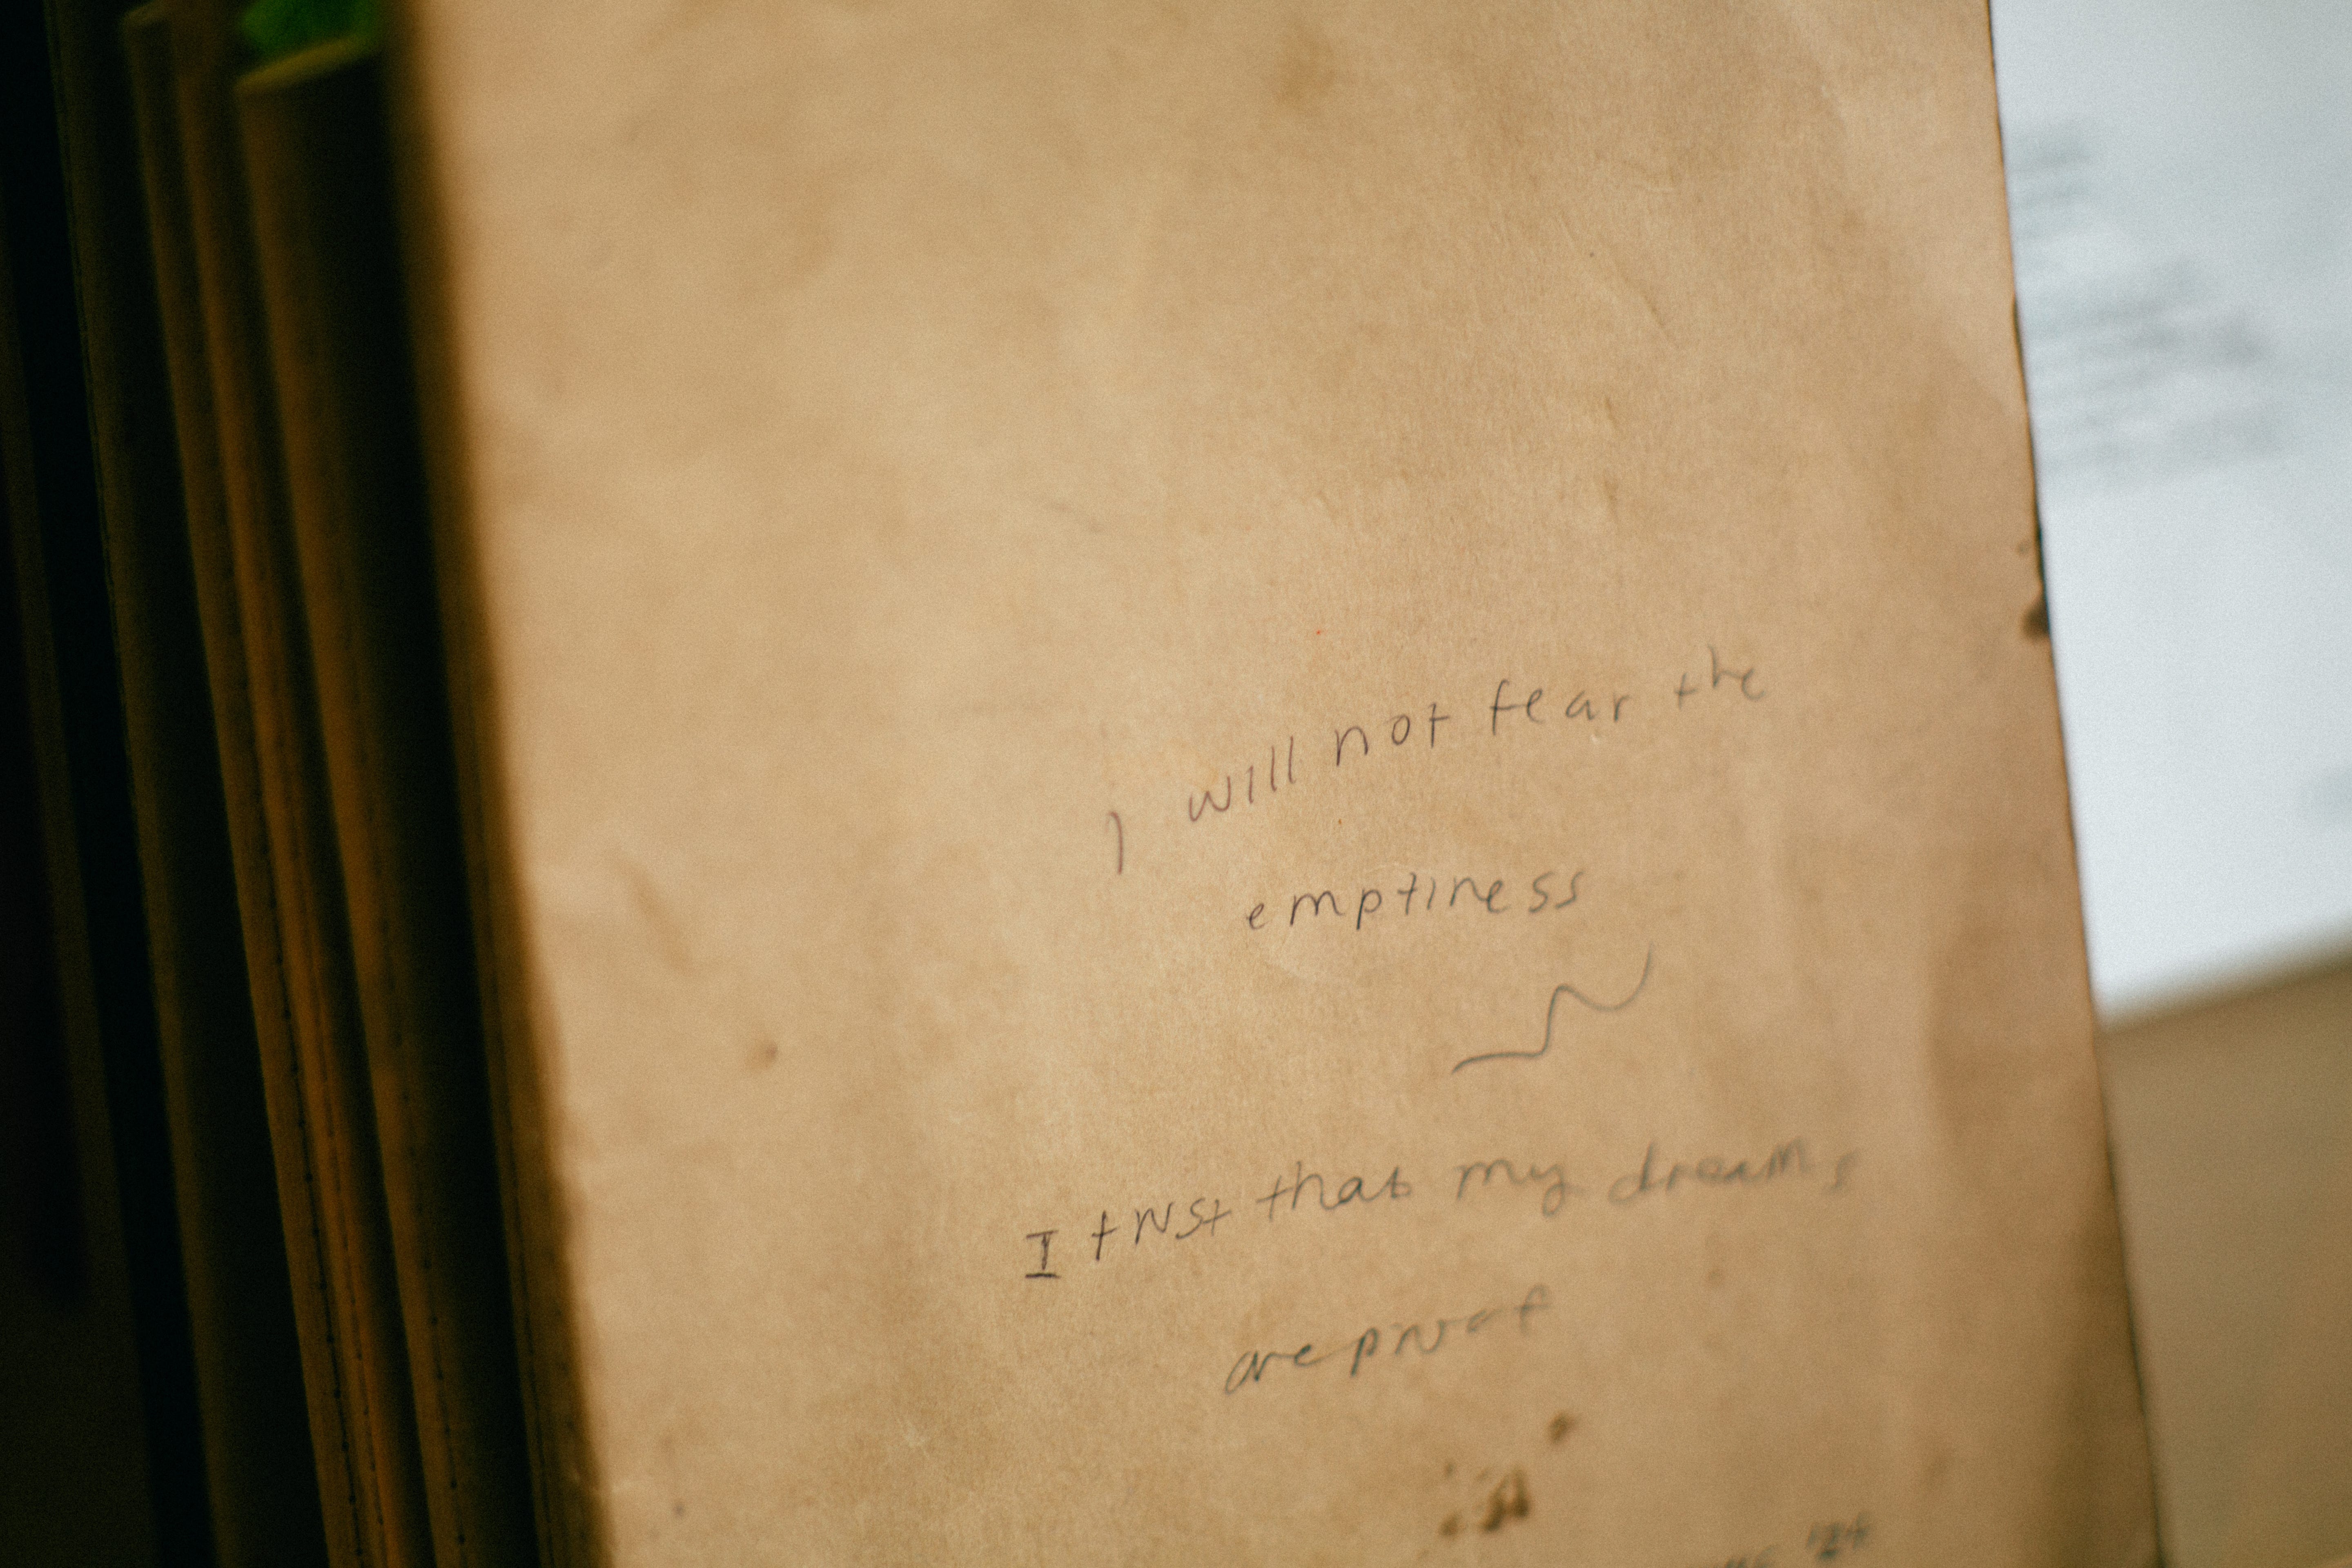 I will not fear the
emptiness
I trust that my dreams
are proof
'24